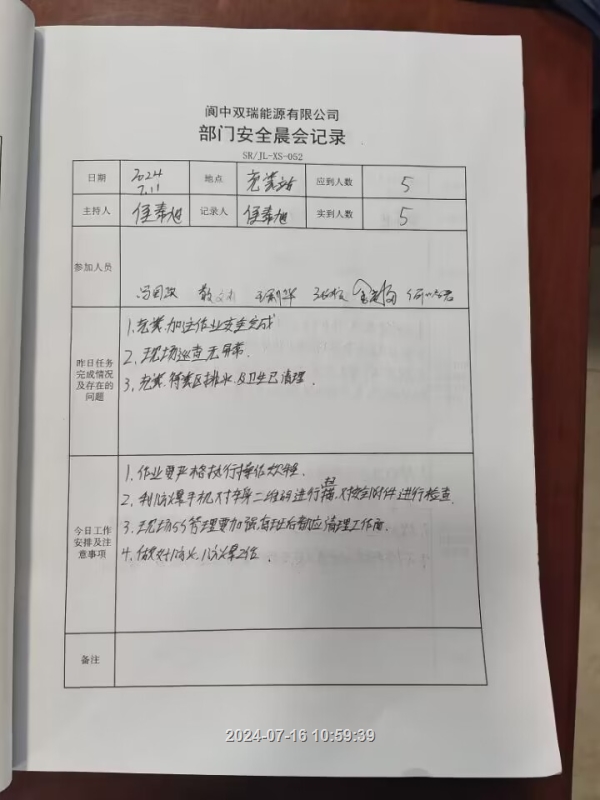 阆中双瑞能源有限公司
部门安全晨会记录
SR/JL-XS-052
日期 2024 7.11 地点 充装站 应到人数 5
主持人 任春旭 记录人 任春旭 实到人数 5
参加人员
昨日任务完成情况及存在的问题
1、充装、加注作业安全完成
2、现场巡查无异常.
3、充装、待装区排水及卫生已清理.
今日工作安排及注意事项
1、作业要严格执行操作规程.
2、利防爆手机对二维码进行扫描,对附件进行检查
3、现场5S管理要加强,每班后都应清理工作面
4、做好防火、防爆工作.
备注
2024-07-16 10:59:39